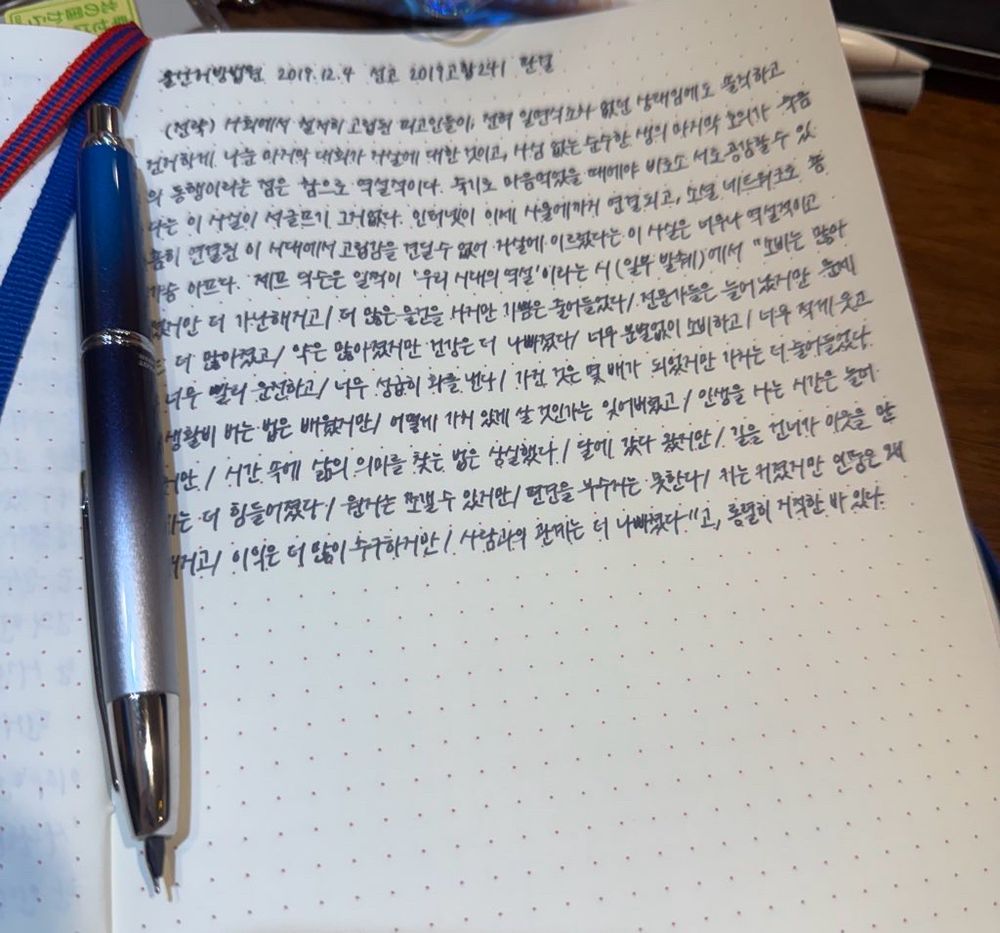 울산지방법원 2019.12.4 선고 2019고합241 판결
(전략) 사회에서 철저히 고립된 피고인들이, 전혀 일면식조차 없던 상대임에도 솔직하고
진지하게 나눈 마지막 대화가 자살에 대한 것이고, 사심 없는 순수한 생의 마지막 호의가 죽음
의 동행이라는 점은 참으로 역설적이다. 죽기로 마음먹었을 때에야 비로소 서로 공감할 수 있
다는 이 사실이 서글프기 그지없다. 인터넷이 이제 사물에까지 연결되고, 소셜 네트워크로 촘
촘히 연결된 이 시대에서 고립감을 견딜 수 없어 자살에 이르렀다는 이 사실은 너무나 역설적이고
가슴 아프다. 제프 딕슨은 일찍이 '우리 시대의 역설'이라는 시(일부 발췌)에서 "소비는 많아
졌지만 더 가난해지고/ 더 많은 물건을 사지만 기쁨은 줄어들었다/ 전문가들은 늘어났지만 문제
는 더 많아졌고/ 약은 많아졌지만 건강은 더 나빠졌다/ 너무 분별없이 소비하고/ 너무 적게 웃고
너무 빨리 운전하고/ 너무 성급히 화를 낸다/ 가진 것은 몇 배가 되었지만 가치는 더 줄어들었다.
생활비 버는 법은 배웠지만/ 어떻게 가치 있게 살 것인가는 잊어버렸고/ 인생을 사는 시간은 늘어
지만/ 시간 속에 삶의 의미를 찾는 법은 상실했다/ 달에 갔다 왔지만/ 길을 건너가 이웃을 만
기는 더 힘들어졌다/ 원자는 쪼갤 수 있지만/ 편견을 부수지는 못한다/ 키는 커졌지만 인품은 왜
해지고/ 이익은 더 많이 추구하지만/ 사람과의 관계는 더 나빠졌다"고, 통렬히 지적한 바 있다.